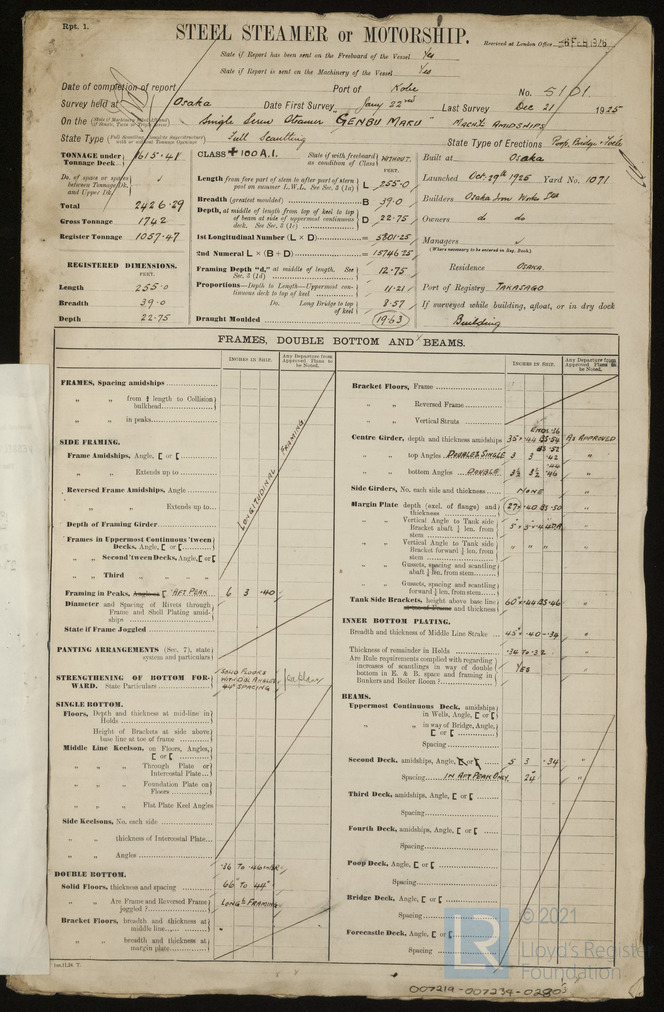 Rpt. 1.
STEEL STEAMER or MOTORSHIP.
Received at London Office
State if Report has been sent on the Freeboard of the Vessel Yes
State if Report is sent on the Machinery of the Vessel Yes
Date of completion of report
Port of Kobe
No. 5101
Survey held at Osaka
Date First Survey Jany 22nd
Last Survey Dec 21 1925
On the Single Screw Steamer "GENBU MARU" MACHY AMIDSHIPS
State Type Full Scantling
State Type of Erections Poop, Bridge & Focle
TONNAGE under Tonnage Deck 1615.41
Do. of space or spaces between Tonnage Dk. and Upper Dk.
Total 2426.29
Gross Tonnage 1742
Register Tonnage 1057.47
REGISTERED DIMENSIONS.
FEET.
Length 255.0
Breadth 39.0
Depth 22.75
CLASS +100A.1. State if with freeboard as condition of Class WITHOUT.
FEET.
Length from fore part of stem to after part of stern post on summer L.W.L. See Sec. 3 (1a) L 255.0
Breadth (greatest moulded) B 39.0
Depth, at middle of length from top of keel to top of beam at side of uppermost continuous deck. See Sec. 3 (1c) D 22.75
1st Longitudinal Number (L × D) = 5801.25
2nd Numeral L × (B + D) = 15746.25
Framing Depth "d," at middle of length. See Sec. 3 (1d) 12.75
Proportions—Depth to Length—Uppermost continuous deck to top of keel 11.21
Do. Long Bridge to top of keel 8.57
Draught Moulded 19.63
Built at Osaka
Launched Oct. 29th 1925 Yard No. 1071
Builders Osaka Iron Works Ltd
Owners do do
Managers
(Where necessary to be entered in Reg. Book.)
Residence OSAKA.
Port of Registry TAKASAGO
If surveyed while building, afloat, or in dry dock
Building
FRAMES, DOUBLE BOTTOM AND BEAMS.
INCHES IN SHIP.
Any Departure from Approved Plans to be Noted.
FRAMES, Spacing amidships
" " from ¾ length to Collision bulkhead
" " in peaks
SIDE FRAMING.
Frame Amidships, Angle, [ or [
" " Extends up to
Reversed Frame Amidships, Angle
" " Extends up to
Depth of Framing Girder
LONGITUDINAL FRAMING
Frames in Uppermost Continuous 'tween Decks, Angle, [ or [
" " Second 'tween Decks, Angle, [ or [
" " Third " " " "
Framing in Peaks, Angle or [ AFT PEAK 6 3 .40
Diameter and Spacing of Rivets through Frame and Shell Plating amidships
State if Frame Joggled
PANTING ARRANGEMENTS (Sec. 7), state system and particulars
STRENGTHENING OF BOTTOM FORWARD. State Particulars SOLID FLOORS WITH DBL ANGLES 44" SPACING
SINGLE BOTTOM.
Floors, Depth and thickness at mid-line in Holds
Height of Brackets at side above base line at toe of frame
Middle Line Keelson, on Floors, Angles, [ or [
" " Through Plate or Intercostal Plate
" " Foundation Plate on Floors
" " Flat Plate Keel Angles
Side Keelsons, No. each side
" " thickness of Intercostal Plate
" " Angles
DOUBLE BOTTOM.
Solid Floors, thickness and spacing .36 TO .46 66" TO 44"
" " Are Frame and Reversed Frame joggled? LONGL FRAMING
Bracket Floors, breadth and thickness at middle line
" " breadth and thickness at margin plate
Bracket Floors, Frame
" " Reversed Frame
" " Vertical Struts
Centre Girder, depth and thickness amidships 35 × .44 AS APPROVED
" " top Angles DOUBLE & SINGLE 3 3 .42 "
" " bottom Angles DOUBLE 3½ 3½ .46 "
Side Girders, No. each side and thickness NONE
Margin Plate depth (excl. of flange) and thickness 27 × .40 "
" " Vertical Angle to Tank side Bracket abaft ¼ len. from stem
" " Vertical Angle to Tank side Bracket forward ¼ len. from stem " " "
" " Gussets, spacing and scantling abaft ¼ len. from stem
" " Gussets, spacing and scantling forward ¼ len. from stem
Tank Side Brackets, height above base line and thickness 60" × .44 "
INNER BOTTOM PLATING.
Breadth and thickness of Middle Line Strake 45" × .40-.34 "
Thickness of remainder in Holds .34 TO .32 "
Are Rule requirements complied with regarding increases of scantlings in way of double bottom in E. & B. space and framing in Bunkers and Boiler Room? YES
BEAMS.
Uppermost Continuous Deck, amidships in Wells, Angle, [ or [
" " in way of Bridge, Angle, [ or [
Spacing
Second Deck, amidships, Angle, [ or [ 5 3 .34 "
Spacing IN AFT PEAK ONLY. 24" "
Third Deck, amidships, Angle, [ or [
Spacing
Fourth Deck, amidships, Angle, [ or [
Spacing
Poop Deck, Angle, [ or [
Spacing
Bridge Deck, Angle, [ or [
Spacing
Forecastle Deck, Angle, [ or [
Spacing
LR
© 2021
Lloyd's Register
Foundation
007219-007234-0280